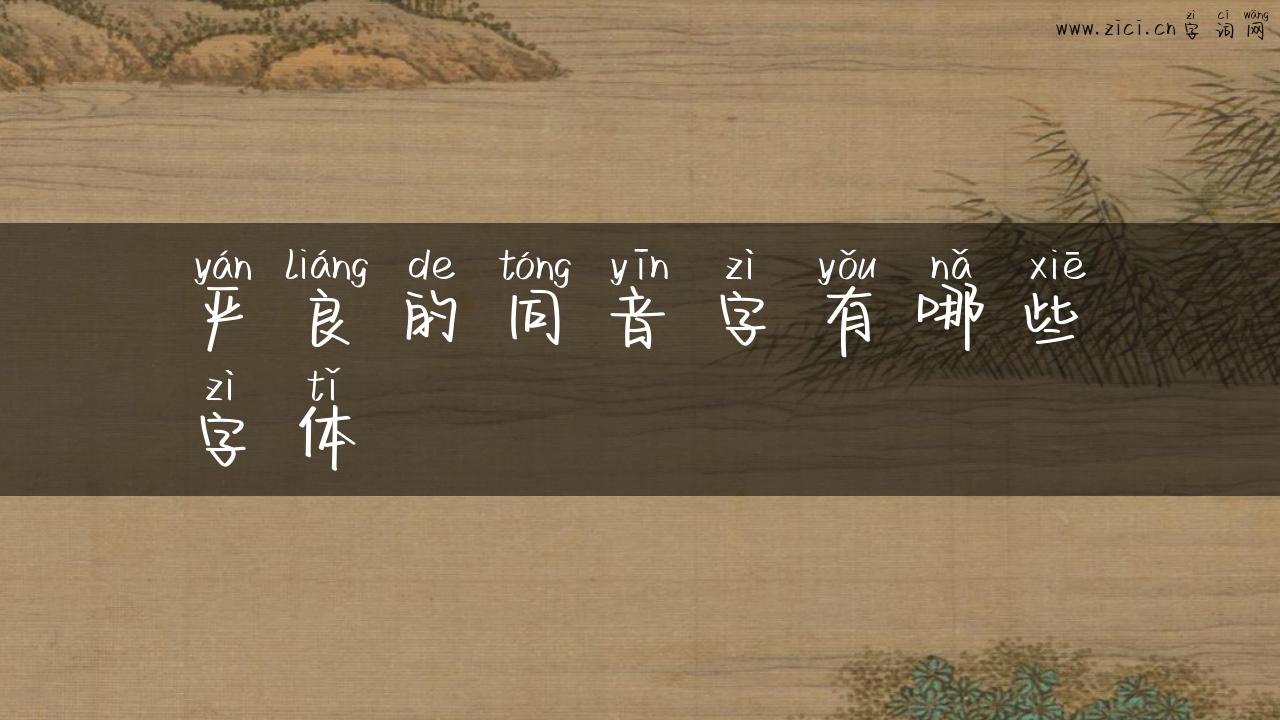 zì cí wǎng
www.zici.cn 字词网
yán liáng de tóng yīn zì yǒu nǎ xiē
严良的同音字有哪些
zì tǐ
字体